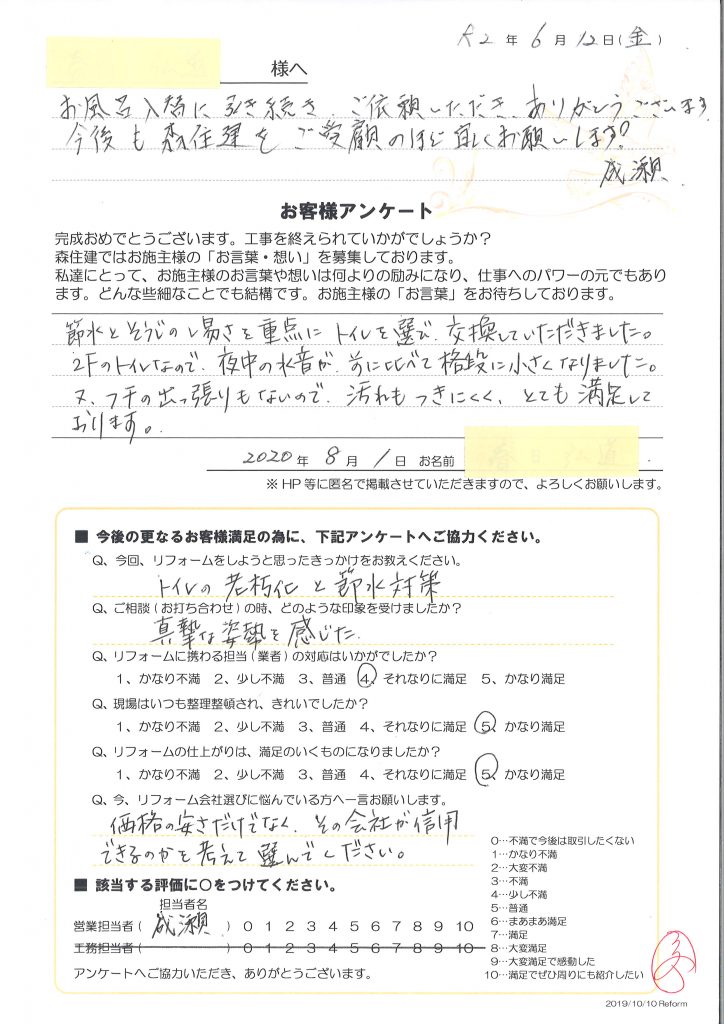 R2年6月12日(金)
様へ
お風呂入替に引き続き、ご依頼いただき、ありがとうございます。
今後も森住建をご愛顧のほど宜しくお願いします!
成瀬
お客様アンケート
完成おめでとうございます。工事を終えられていかがでしょうか?
森住建ではお施主様の「お言葉・想い」を募集しております。
私達にとって、お施主様のお言葉や想いは何よりの励みになり、仕事へのパワーの元でもあり
ます。どんな些細なことでも結構です。お施主様の「お言葉」をお待ちしております。
節水とそうじのし易さを重点にトイレを選び、交換していただきました。
2Fのトイレなので、夜中の水音が、前に比べて格段に小さくなりました。
又、フチの出っ張りもないので、汚れもつきにくく、とても満足して
おります。
2020年8月1日 お名前
※HP等に匿名で掲載させていただきますので、よろしくお願いします。
■ 今後の更なるお客様満足の為に、下記アンケートへご協力ください。
Q、今回、リフォームをしようと思ったきっかけをお教えください。
トイレの老朽化と節水対策
Q、ご相談(お打ち合わせ)の時、どのような印象を受けましたか?
真摯な姿勢を感じた。
Q、リフォームに携わる担当(業者)の対応はいかがでしたか?
1、かなり不満 2、少し不満 3、普通 4、それなりに満足 5、かなり満足
Q、現場はいつも整理整頓され、きれいでしたか?
1、かなり不満 2、少し不満 3、普通 4、それなりに満足 5、かなり満足
Q、リフォームの仕上がりは、満足のいくものになりましたか?
1、かなり不満 2、少し不満 3、普通 4、それなりに満足 5、かなり満足
Q、今、リフォーム会社選びに悩んでいる方へ一言お願いします。
価格の安さだけでなく、その会社が信用
できるのかを考えて選んでください。
■ 該当する評価に○をつけてください。
担当者名
営業担当者( 成瀬 ) 0 1 2 3 4 5 6 7 8 9 10
工務担当者( ) 0 1 2 3 4 5 6 7 8 9 10
アンケートへご協力いただき、ありがとうございます。
0…不満で今後は取引したくない
1…かなり不満
2…大変不満
3…不満
4…少し不満
5…普通
6…まあまあ満足
7…満足
8…大変満足
9…大変満足で感動した
10…満足でぜひ周りにも紹介したい
2019/10/10 Reform